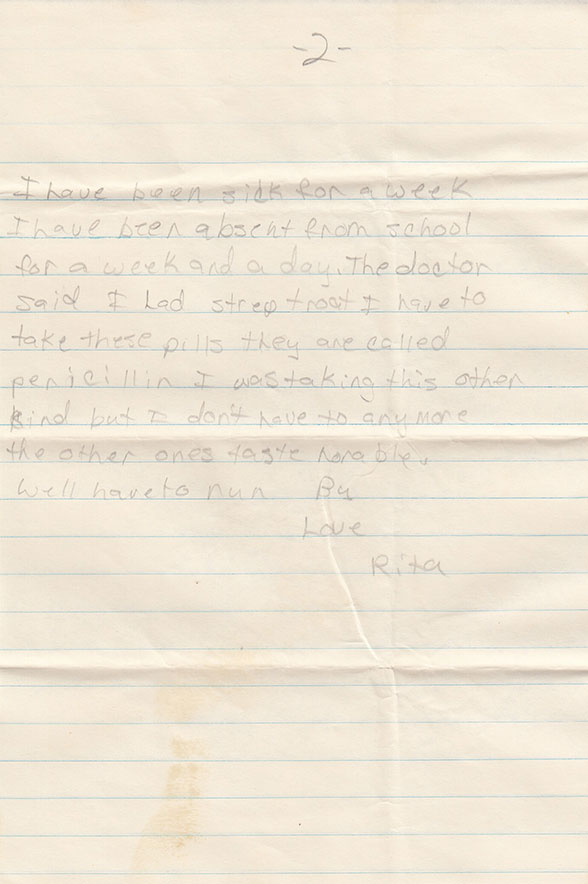 -2-
I have been sick for a week
I have been absent from school
for a week and a day. The doctor
said I had strep troat I have to
take these pills they are called
penicillin I was taking this other
kind but I don't have to any more
the other ones taste horable.
Well have to run By
Love
Rita